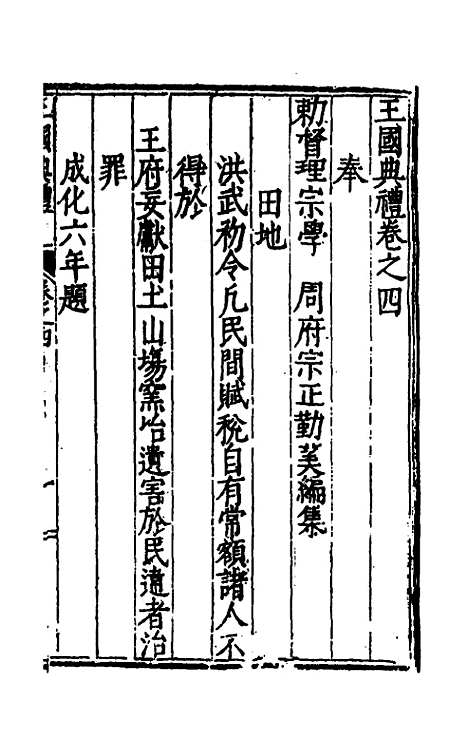 王國典禮卷之四
奉
勑督理宗學　周府宗正勤羙編集
田地
洪武初令凡民間賦稅自有常額諸人不
得於
王府妄獻田土山塲窯冶遺害於民違者治
罪
成化六年題
王國典禮
卷之四